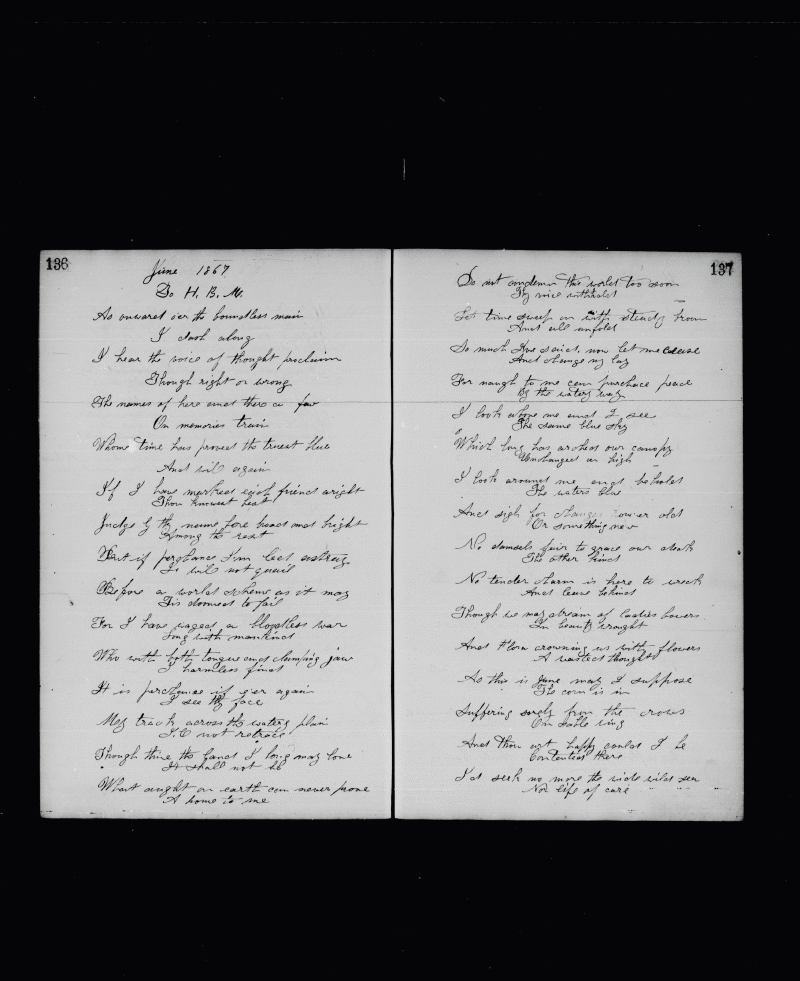 136
June 1867
To H. B. M.
As onward o'er the boundless main
I dash along
I hear the voice of thought proclaim
Though right or wrong
The names of here and there a few
On memories train
Whome time has proved the truest blue
And will again
If I have marked each friend aright
Thou knowest best
Judge if thy name fore heads and bright
Among the rest
But if perchance I'm led astray
I will not quail
Before a world scheme as it may
Tis doomed to fail
For I have waged a bloodless war
Long with mankind
Who with both tongue and clamping jaw
I harmless find
It is perchance if e'er again
I see thy face
My track across the watery plain
I'll not retrace
Though thine the hand I long may love
It shall not be
What aught on earth can never prove
A home to me
137
Do not condemn this world too soon
Thy voice withhold
Let time sweep on with steady
And all unfold
So much I've said, now let me cease
And change my lay
For naught to me can purchace peace
By the watery way
I look above me and I see
The same blue sky
Which long has arched our canopy
Unchanged on high
I look around me and behold
The waters blue
And sigh for change however old
Or something new
No damsels fair to grace our deck
The other kind
No tender charm is here to wreck
And leave behind
Though we may dream of ladies bowers
In beauty wrought
And Flora crowning us with flowers
A wasted thought
As this is June may I suppose
The corn is in
Suffering sorely from the crows
On sable wing
And thou art happy could I be
Contented there
I'd seek no more the wide wild sea
Nor life of care